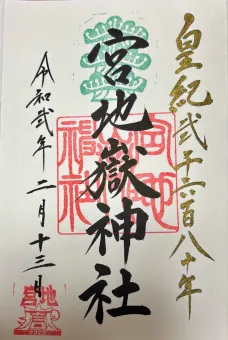 皇紀弐千六百八十年
宮地嶽神社
令和弐年 二月十三日
宮地嶽
神社
宮地